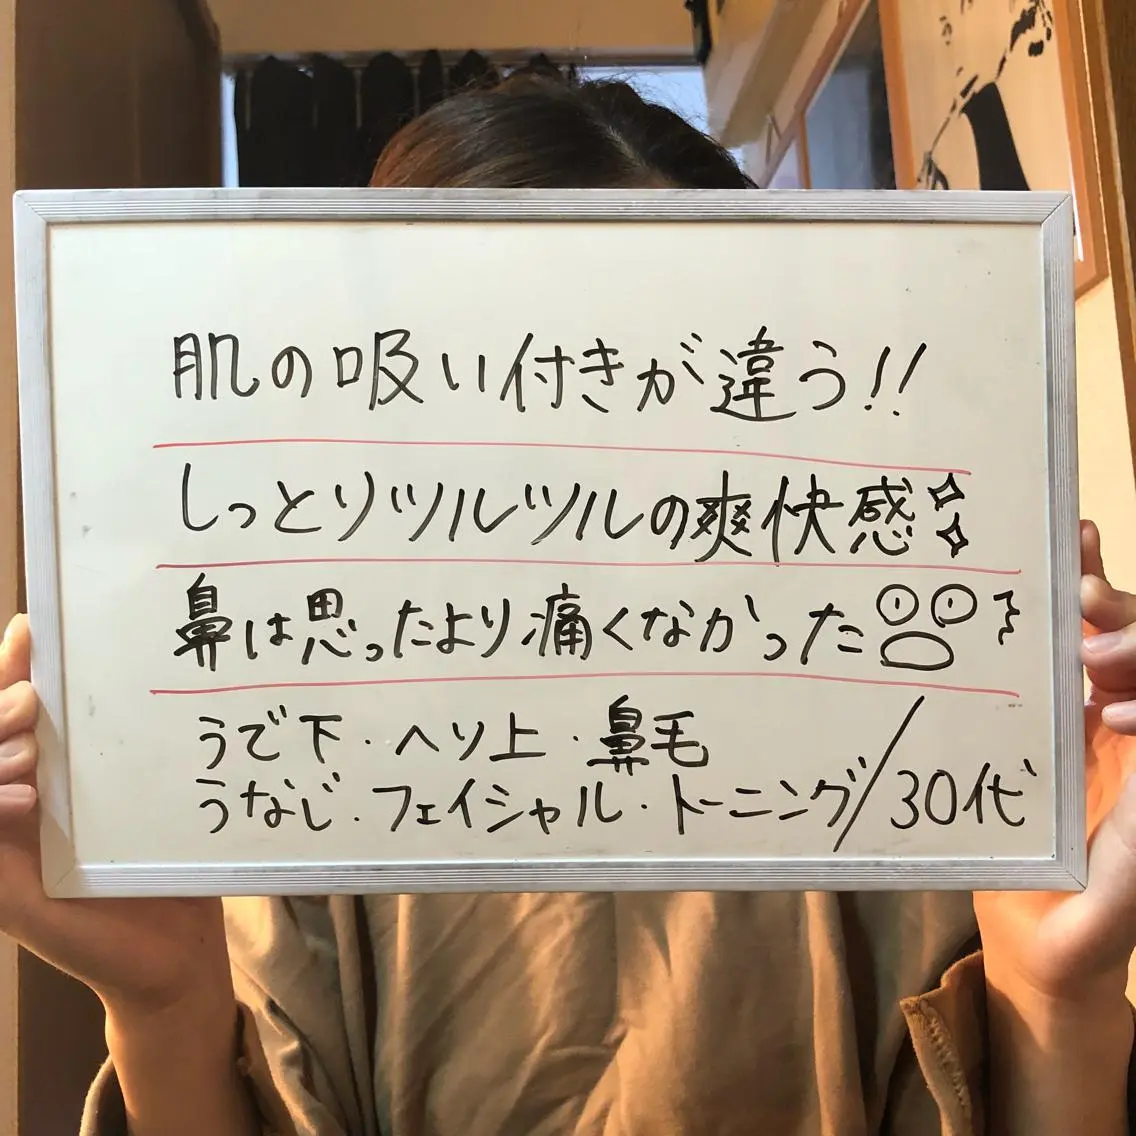 肌の吸い付きが違う!!
しっとりツルツルの爽快感
鼻は思ったより痛くなかった
うで下・ヘソ上・鼻毛
うなじ・フェイシャル・トーニング/30代